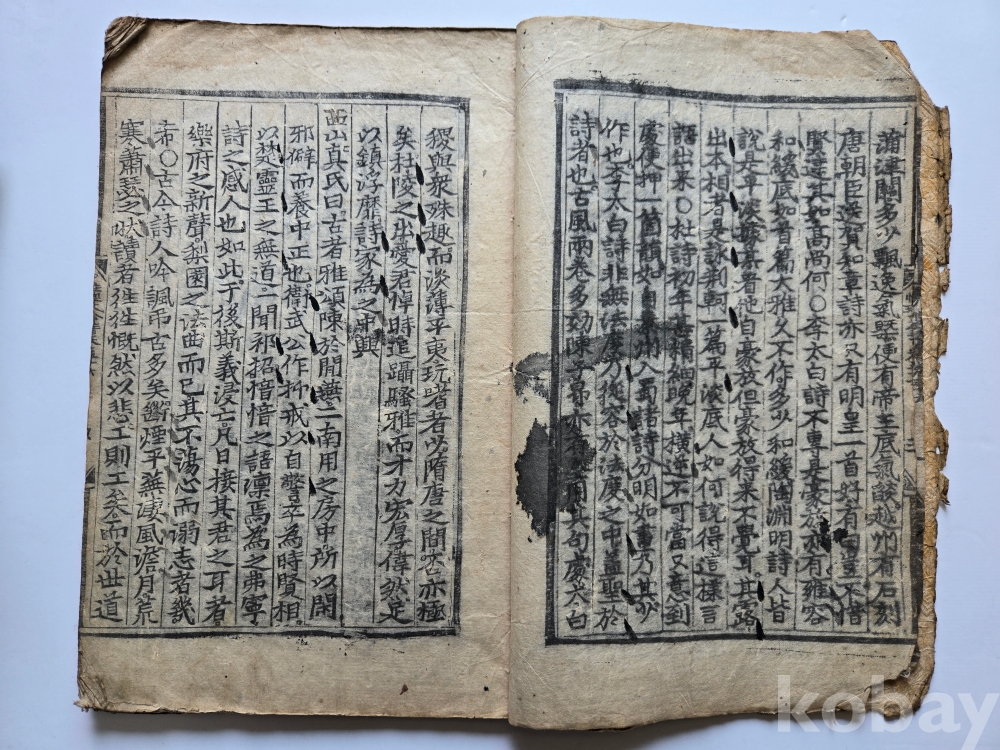 蒲津關多少飄逸氣槩便有帝王底氣燄越州有石刻
唐朝臣送賀知章詩亦只有明皇一首好有曰豈不惜
賢達其如高尚何○李太白詩不專是豪放亦有雍容
和緩底如首篇大雅久不作多少和緩陶淵明詩人皆
說是平淡據某看他自豪放但豪放得來不覺耳其露
出本相者是詠荊軻一篇平淡底人如何說得這樣言
語出來○杜詩初年甚精細晚年橫逆不可當只意到
處便押一箇韻如自秦州入蜀諸詩分明如畫乃其少
作也李太白詩非無法度乃從容於法度之中蓋聖於
詩者也古風兩卷多效陳子昂亦有全用其句處太白
稷與衆殊趣而淡薄平夷玩嗜者少隋唐之間否亦極
矣杜陵之出愛君悼時追躡騷雅而才力宏厚偉然足
以鎮浮靡詩家為之中興
西山真氏曰古者雅頌陳於閒讌二南用之房中所以閑
邪僻而養中正也衛武公作抑戒以自警卒為時賢相
以楚靈王之無道一聞祈招愔愔之語凜焉為之弗寧
詩之感人也如此于後斯義浸亡凡日接其君之耳者
樂府之新聲梨園之法曲而已其不蕩心而溺志者幾
希○古今詩人吟諷弔古多矣斷煙平蕪淒風澹月荒
寒蕭瑟之狀讀者往往慨然以悲工則工矣而於世道